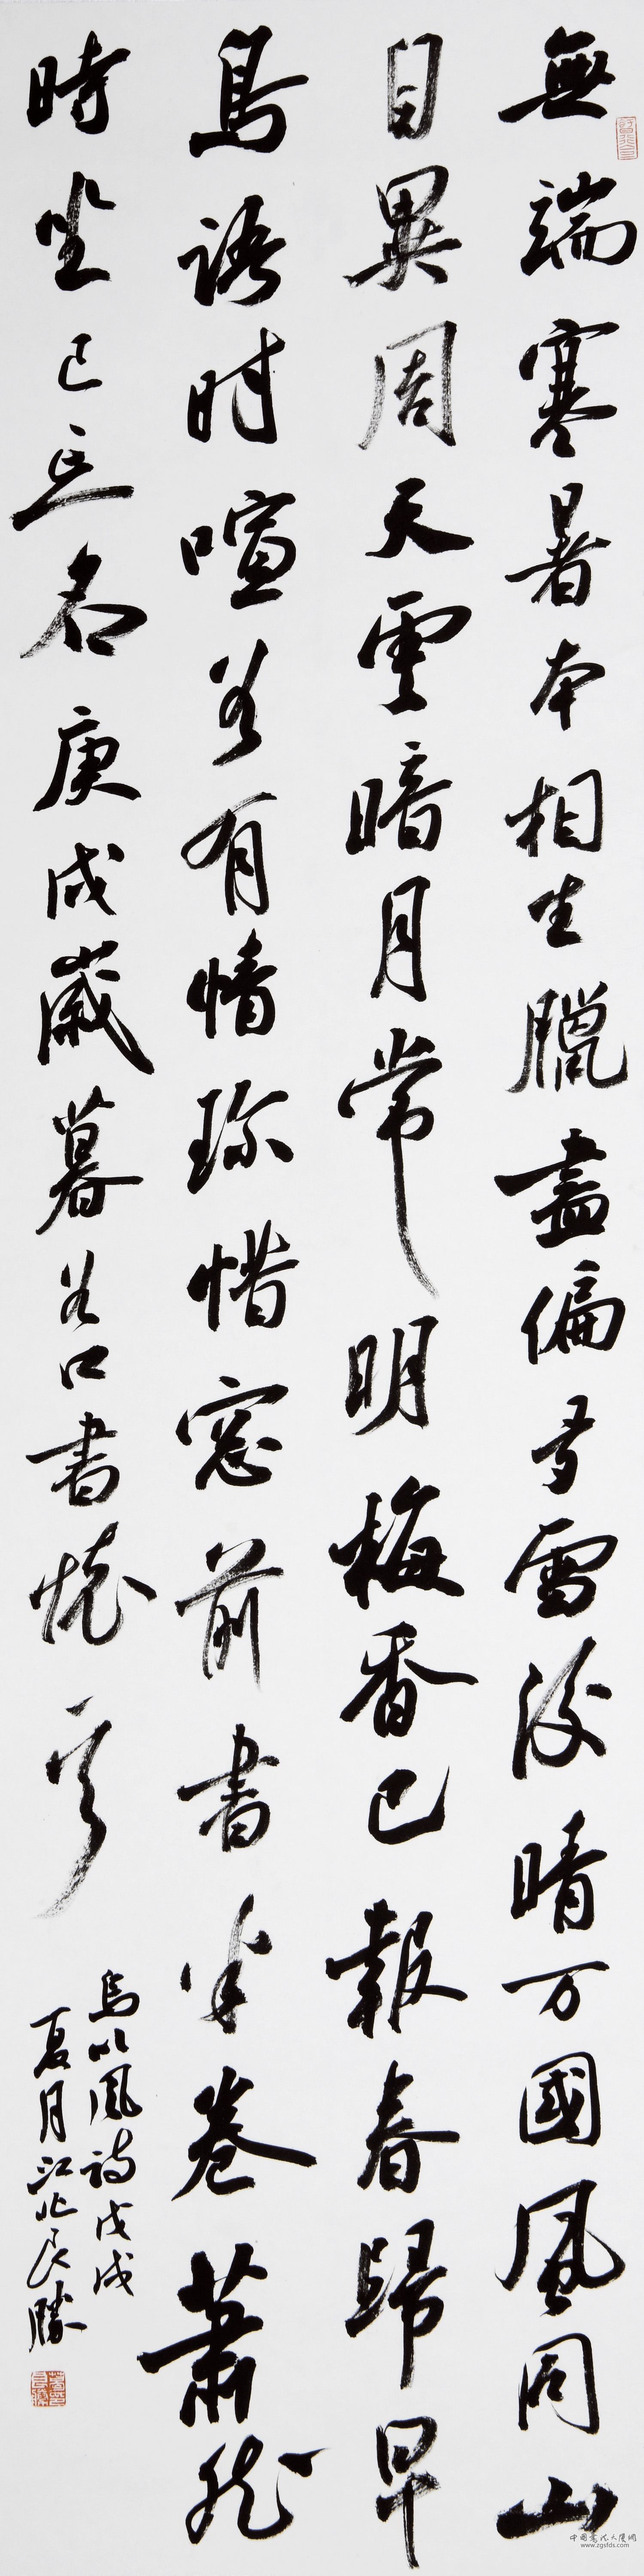 無端寒暑本相生臘盡偏多雪後晴万國風同山
日異周天雲暗月常明梅香已報春歸早
鳥語時喧若有情珍惜窓前書半卷蕭然
時坐已忘名庚戌歲暮谷口書懷一首
烏以風詩戊戌
夏月江北良勝
中国书法大厦网
www.zgsfds.com